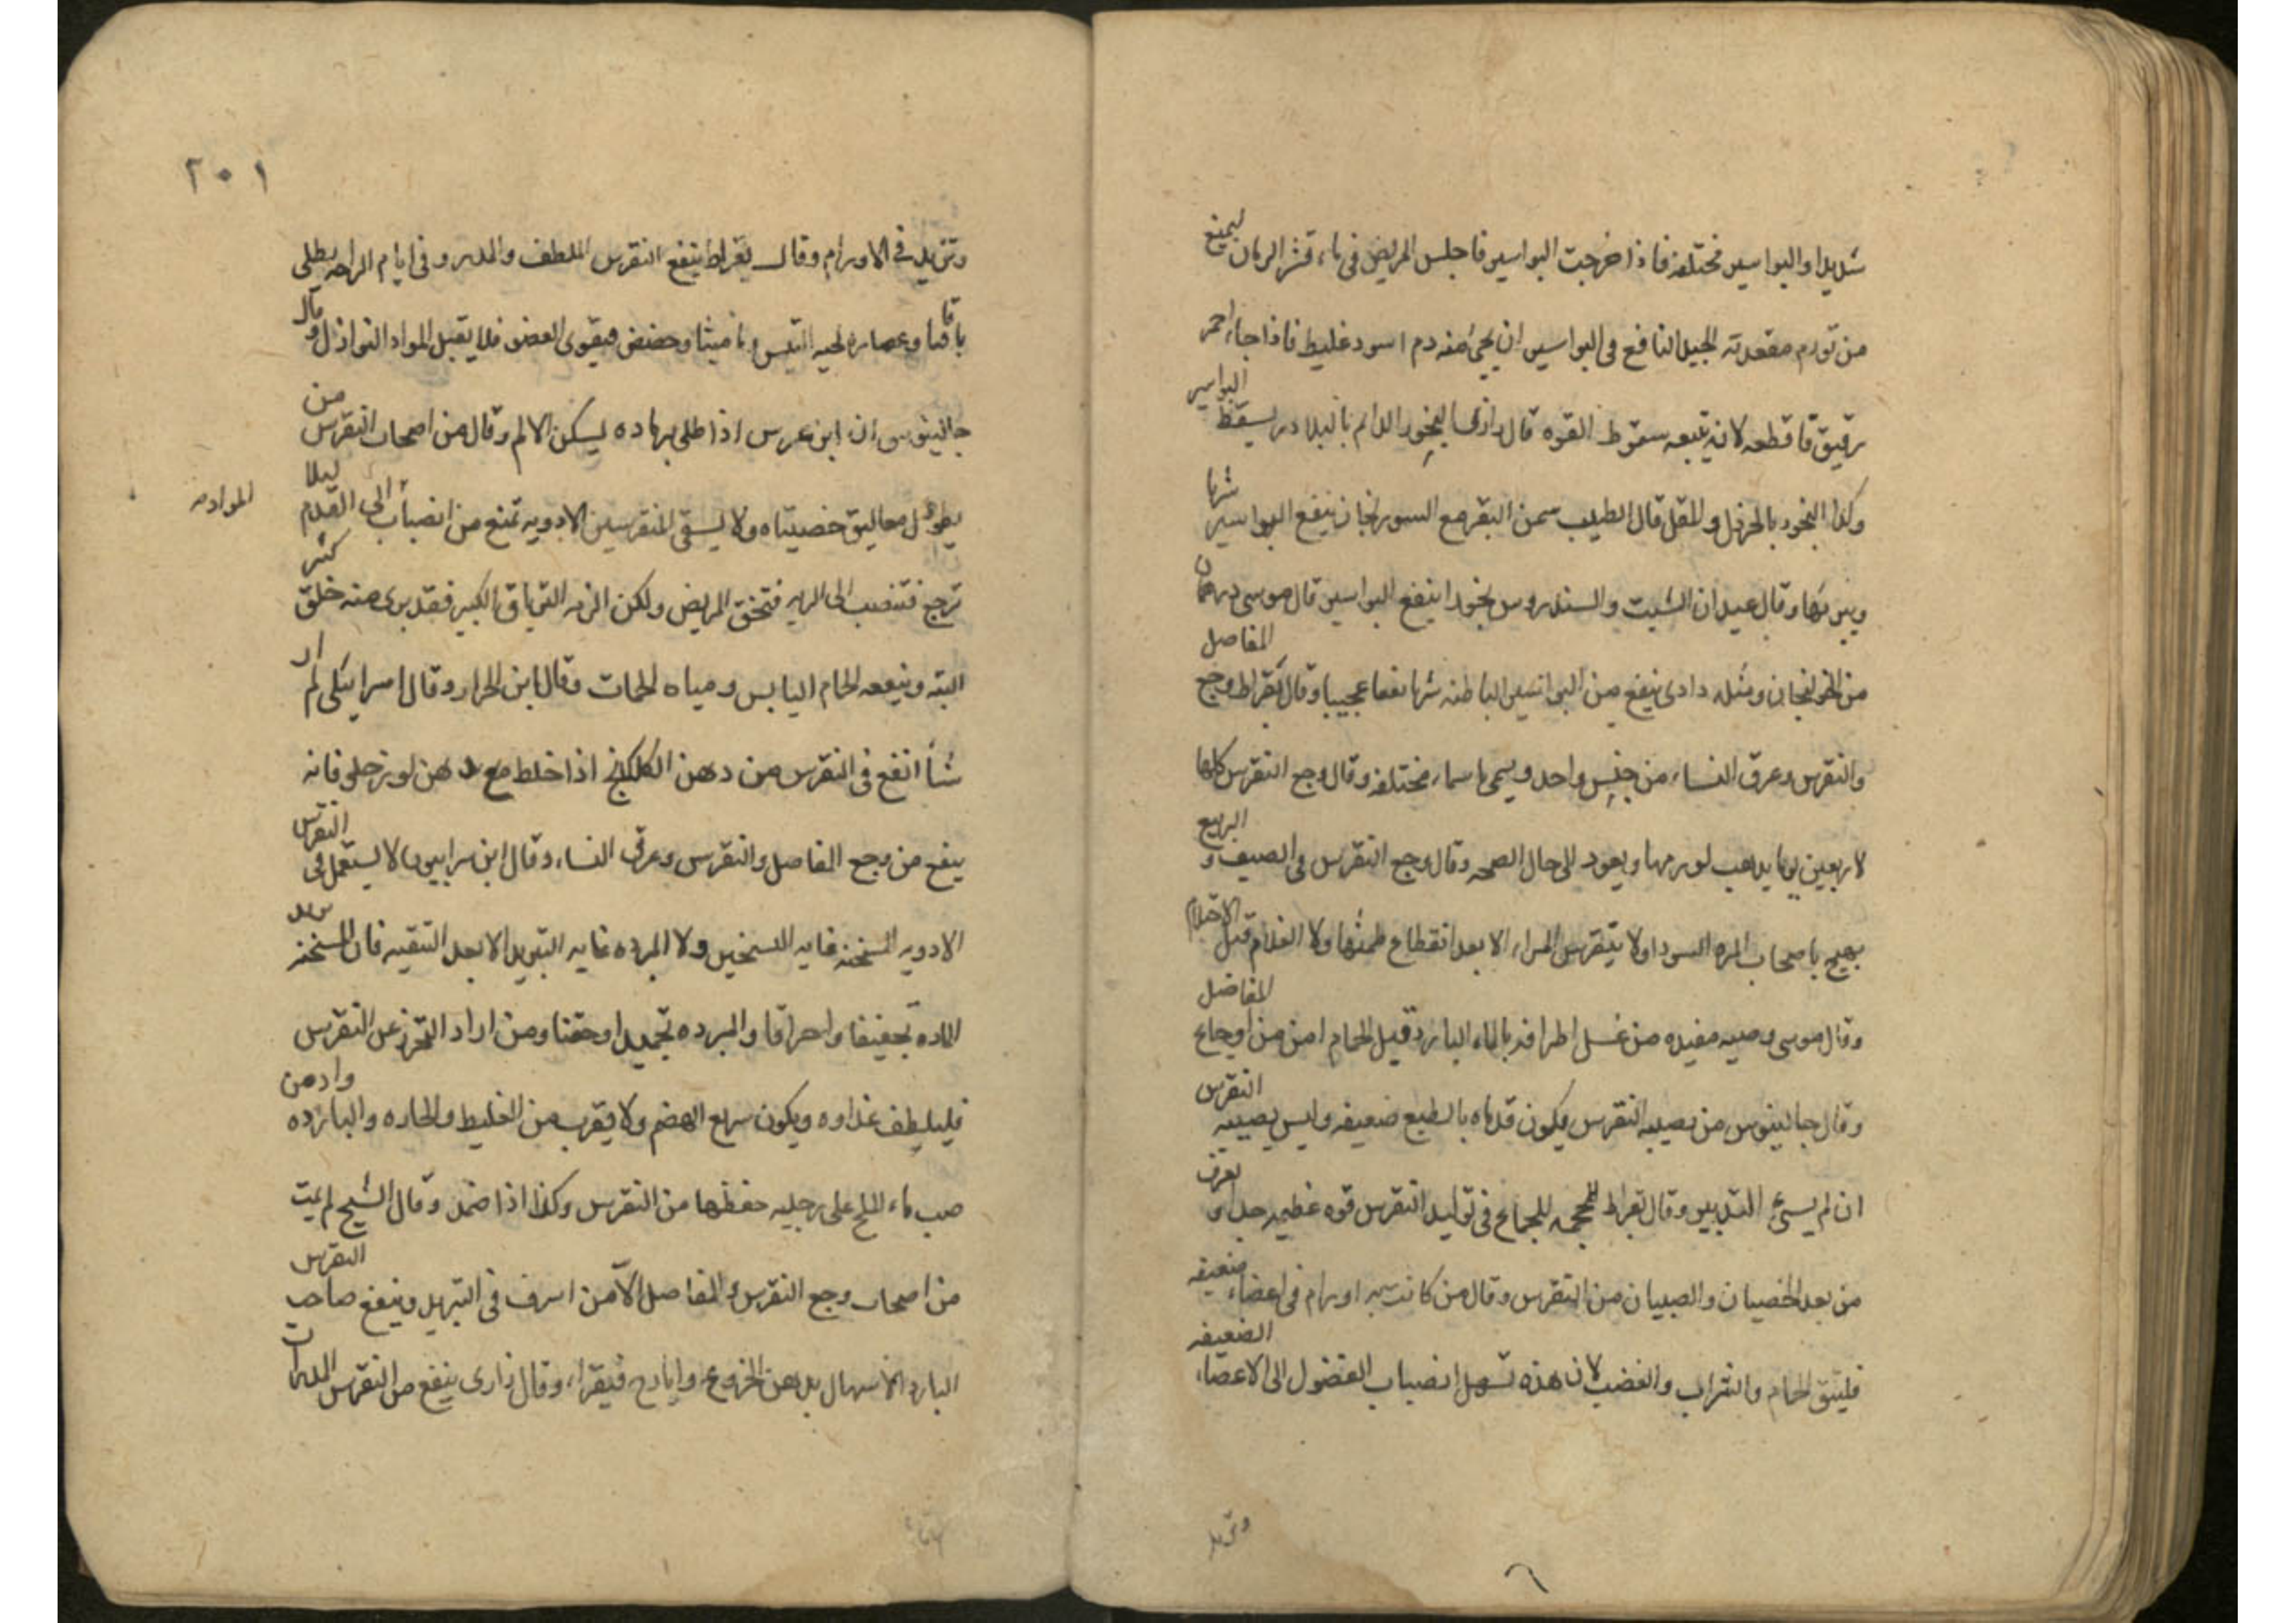 شديدا والبواسير مختلفة فاذا خرجت البواسير فاجلس المريض فى ماء قشر الرمان ليمنع
من تورم مقعدته الجيد النافع فى البواسير ان يجئ منه دم اسود غليظ فاذا جاء احمر
رقيق فاقطعه لانه يتبعه سقوط القوه قال رازى البخور الدايم بالبلادر يسقط البواسير
وكذا البخور بالحرمل والمقل قال الطيب سمن البقر مع السورنجان ينفع البواسير شربا
وقال عيد ان الشبت والسندروس بخورا ينفع البواسير قال موسى درهمان
من الخولنجان ومثله دادى ينفع من البواسير الباطنه شربا نفعا عجيبا وقال بقراط وجع المفاصل
والنقرس وعرق النساء من جنس واحد ويسمى باسماء مختلفه وقال وجع النقرس كلها
لاربعين يوما يذهب لورمها ويعود الى حال الصحه وقال وجع النقرس فى الصيف و الربيع
يهيج باصحاب المره السودا ولا يتنقرس المراه الا بعد انقطاع طمثها ولا الغلام قبل الاحتلام
وقال موسى وصيه مفيده من غسل اطرافه بالماء البارد قبل الحمام امن من اوجاع المفاصل
وقال جالينوس من يصيبه النقرس يكون قدماه بالطبع ضعيفه وليس يصيبه النقرس
ان لم يسئ التدبير وقال بقراط للجماع فى توليد النقرس قوه عظيمه جدا و تعرف
من بعد الخصيان والصبيان من النقرس وقال من كانت به اورام فى اعضاء ضعيفه
فليتق الحمام والشراب والغضب لان هذه تسهل انصباب الفضول الى الاعضاء الضعيفه
وتزيد
٢٠١
وتزيد فى الاورام وقال بقراط ينفع النقرس الملطف والمدر وفى ايام الراحه يطلى
باقاقيا وعصاره لحيه التيس وماميثا وحضض فيقوى العضو فلا يقبل المواد النوازل وقال
جالينوس ان ابن عرس اذا طلى برماده يسكن الالم وقال من اصحاب النقرس من
يطول معاليق خصيتاه ولا يسقى المنقرسين الادويه تمنع من انصباب الى القدم ليلا
المواد
ترجع فتنصب الى الريه فتخنق المريض ولكن الزمه الترياق الكبير فقد برى منه خلق كثير
البته وينفعه الحمام اليابس ومياه الحمات وقال ابن الجزار وقال اسرائيلى لم ار
شأ انفع فى النقرس من دهن الكلكلانج اذا خلط مع دهن لوز حلو فانه
ينفع من وجع المفاصل والنقرس وعرق النساء وقال ابن سرابيون لا يستعمل فى النقرس
الادويه المسخنه غايه التسخين ولا المبرده غايه التبريد الا بعد التنقيه فان المسخنه
الماده تجفيفا واحراقا والمبرده تجميدا وحقنا ومن اراد التحرز عن النقرس
فليلطف غذاوه ويكون سريع الهضم ولا يقرب من الغليظ والحاره والبارده وادمن
صب ماء الملح على رجليه حفظها من النقرس وكذا اذا ضمد وقال الشيخ لم يمت
من اصحاب وجع النقرس و المفاصل الا من اسرف فى التبريد وينفع صاحب النقرس
البارد الاسهال بدهن الخروع وايارج فيقرا وقال رازى ينفع من النقرس المدرات